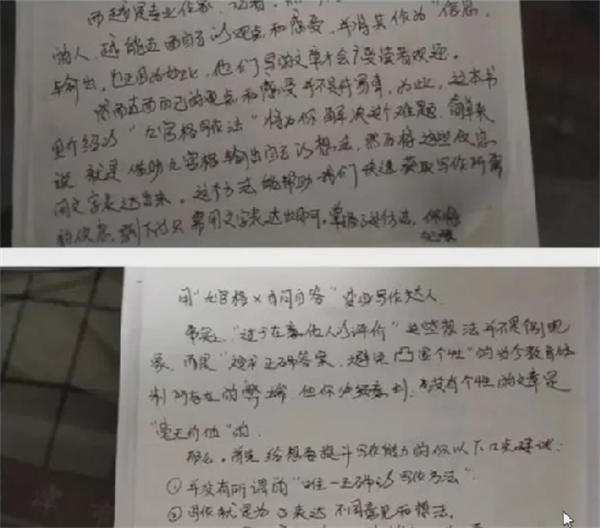 而越是专业作家、记者,
的人,越能直面自己的观点和感受,并将其作为“信息”
输出,也正因为如此,他们写的文章才会广受读者欢迎。
然而直面自己的观点和感受并不是件易事,为此,这本书
介绍的“九宫格写作法”将为你解决这个难题,简单来
说,就是借助九宫格输出自己的想法,然后将这些信息
用文字表达出来。这个方法能帮助我们快速获取写作所需
的信息,剩下的只需用文字表达出来即可。掌握了这个方法,你将
用“九宫格×自问自答”变身写作达人
事实上,“过于在意他人的评价”这些想法并不是个别现
象,而是“追求正确答案,避免凸显个性”的当今教育体
制所存在的弊端,但你必须意识到,没有个性的文章是
“毫无价值”的。
那么,首先给想要提升写作能力的你以下几点建议:
①并没有所谓的“唯一正确的写作方法”
②写作就是为了表达不同意见和想法。